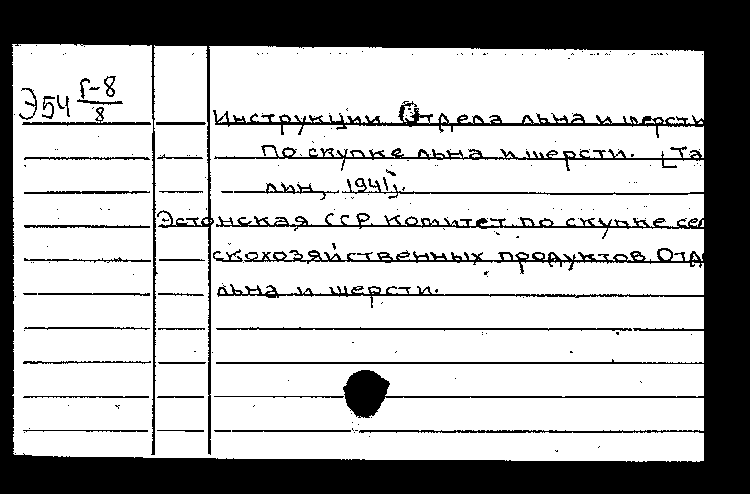 Э54 Г-8
8
Инструкции Отдела льна и шерсти
по скупке льна и шерсти. [Та
лин, 1941].
Эстонская ССР. Комитет по скупке сел
скохозяйственных продуктов. Отде
льна и шерсти.